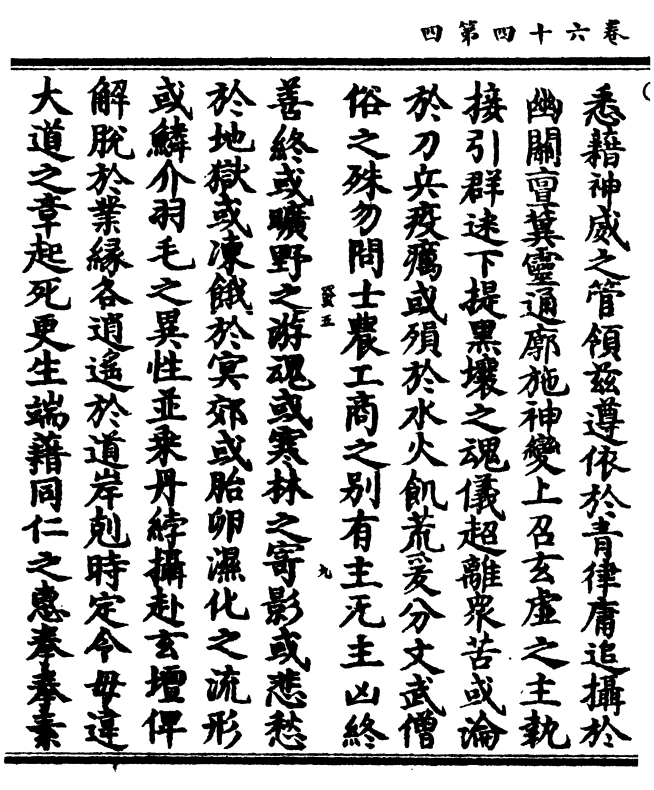 卷六十四第四
悉藉神威之管領玆遵依於青律庸追攝於
幽關亶冀靈通廓施神變上召玄虛之主執
接引群迷下提黑壤之魂儀超離衆苦或淪
於刀兵疫癘或殞於水火飢荒爰分文武僧
俗之殊勿問士農工商之別有主无主凶終
癸五
九
善終或曠野之游魂或寒林之寄影或悲愁
於地獄或凍餓於冥郊或胎卵濕化之流形
或鱗介羽毛之異性並乘丹綍攝赴玄壇俾
解脫於業緣各逍遙於道岸剋時定令毋違
大道之章起死更生端藉同仁之惠奉奉素